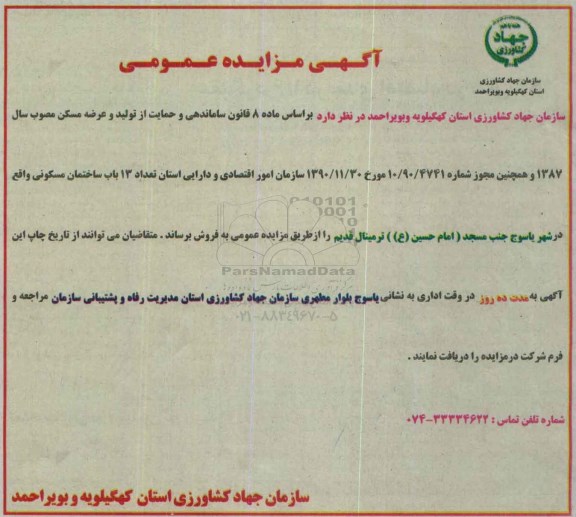 جهاد
کشاورزی
سازمان جهاد کشاورزی
استان کهگیلویه وبویراحمد
آگهی مزایده عمومی
سازمان جهاد کشاورزی استان کهگیلویه وبویراحمد در نظر دارد براساس ماده ۸ قانون ساماندهی و حمایت از تولید و عرضه مسکن مصوب سال
۱۳۸۷ و همچنین مجوز شماره ۱۰/۹۰/۴۷۴۱ مورخ ۱۳۹۰/۱۱/۳۰ سازمان امور اقتصادی و دارایی استان تعداد ۱۳ باب ساختمان مسکونی واقع
درشهر یاسوج جنب مسجد ( امام حسین (ع) ) ترمینال قدیم را ازطریق مزایده عمومی به فروش برساند . متقاضیان می توانند از تاریخ چاپ این
ParsNamadData
آگهی به مدت ده روز در وقت اداری به نشانی یاسوج بلوار مطهری سازمان جهاد کشاورزی استان مدیریت رفاه و پشتیبانی سازمان مراجعه و
۰۲۱-۸۸۳۴۹۶۷۰-۵
فرم شرکت درمزایده را دریافت نمایند .
شماره تلفن تماس : ۳۳۳۳۴۶۲۲-۰۷۴
سازمان جهاد کشاورزی استان کهگیلویه و بویراحمد